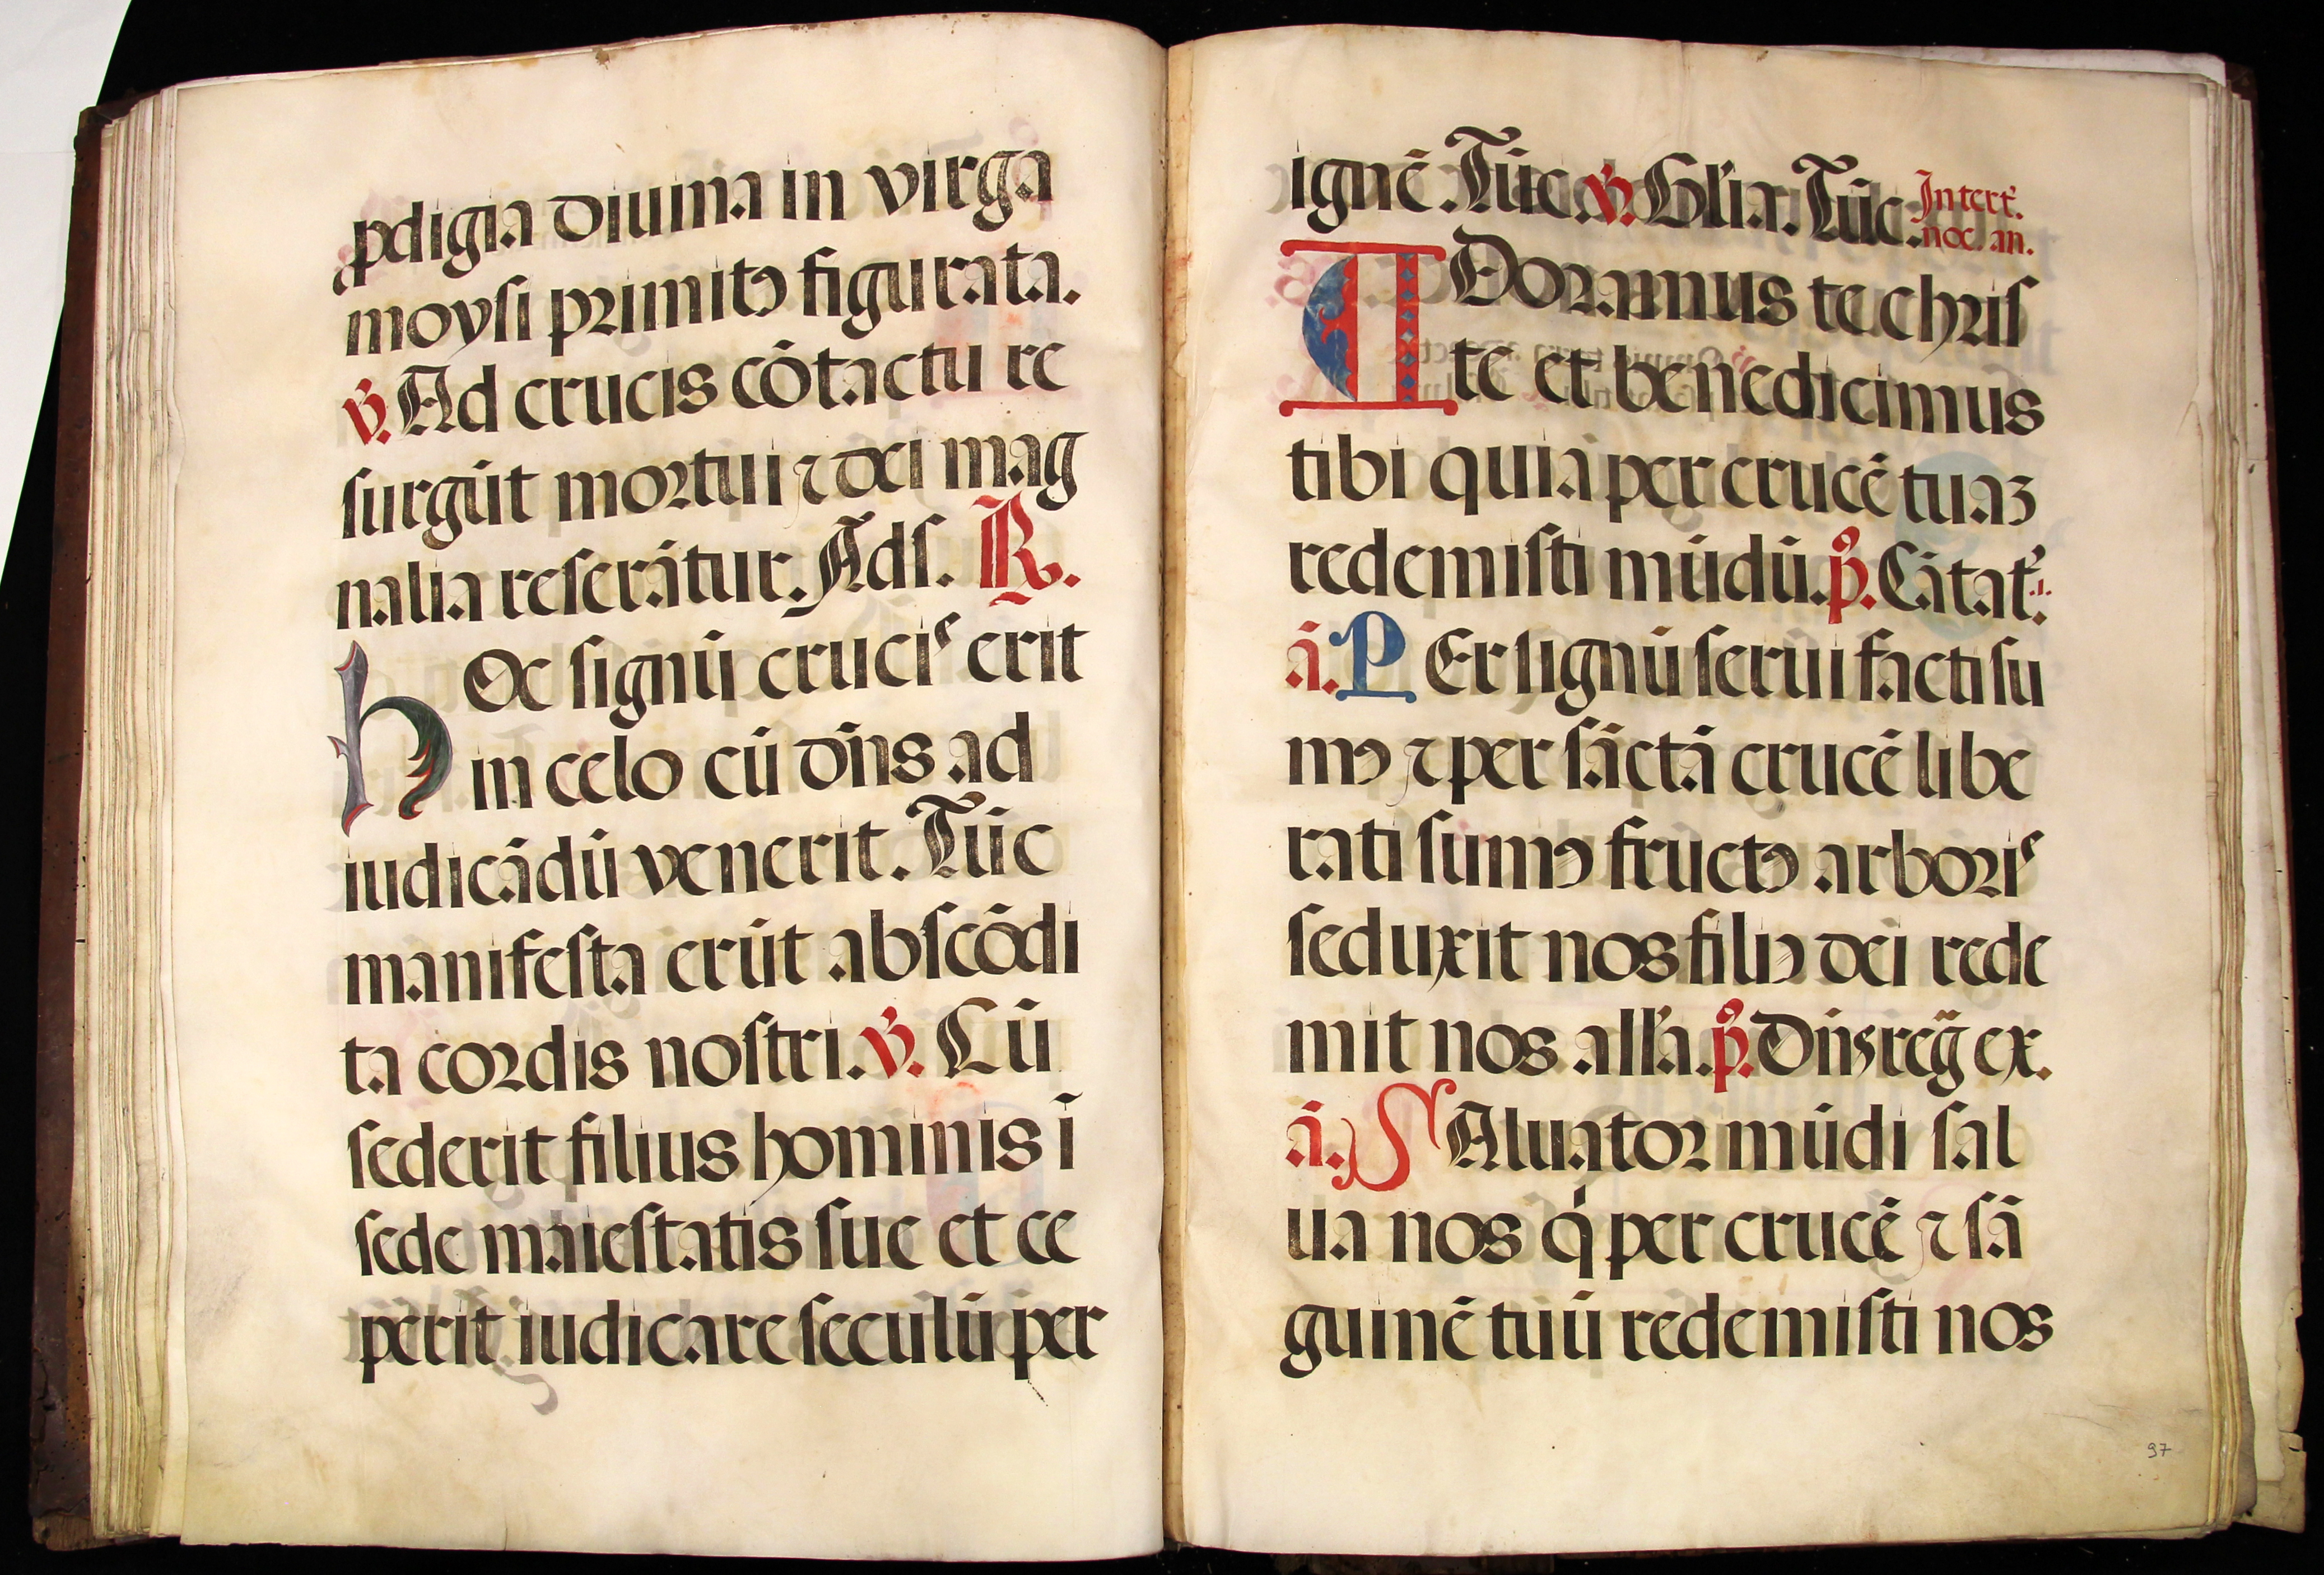 ꝓdigia diuina in virga
moysi primitꝰ figurata.
℣. Ad crucis cōtactu re
surgūt mortui ⁊ dei mag
nalia reserātur. Ads. ℟.
hOc signū crucis erit
in celo cū dn̄s ad
iudicādū venerit. Tūc
manifesta erūt abscōdi
ta cordis nostri. ℣. Cū
sederit filius hominis ī
sede maiestatis sue et ce
perit iudicare seculū per
ignē. Tūc. ℣. Gl'ia. Tūc. In tert'.
noc. an.
ADoramus te chris
te et benedicimus
tibi quia per crucē tuaꝫ
redemisti mūdū. p̊. Cātat'. .i.
ā. PEr lignū serui facti su
mꝰ ⁊ per sāctā crucē libe
rati sumꝰ fructꝰ arboris
seduxit nos filiꝰ dei rede
mit nos all'a. p̊. Dn̄s reḡ ex.
ā. SAluator mūdi sal
ua nos qͥ per crucē ⁊ sā
guinē tuū redemisti nos
97